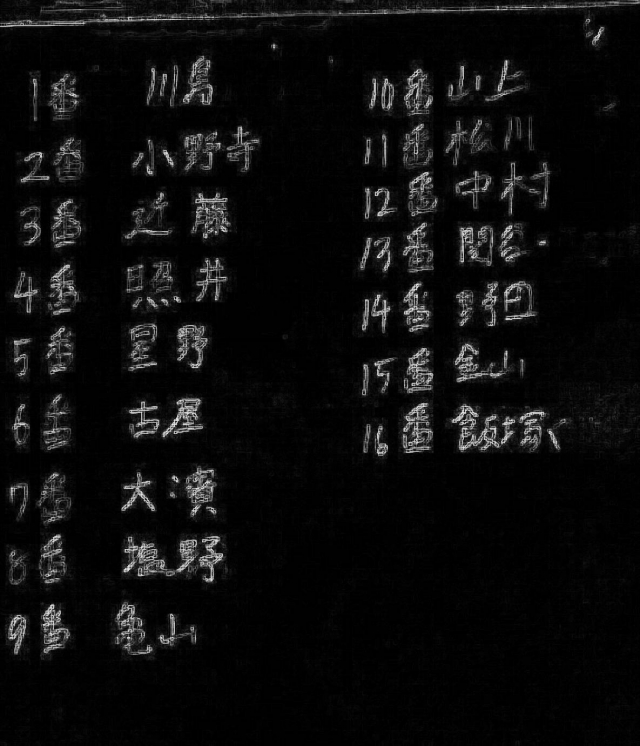 1番 川島
2番 小野寺
3番 近藤
4番 照井
5番 星野
6番 古屋
7番 大濱
8番 塩野
9番 亀山
10番 山上
11番 松川
12番 中村
13番 関谷
14番 野田
15番 金山
16番 飯塚